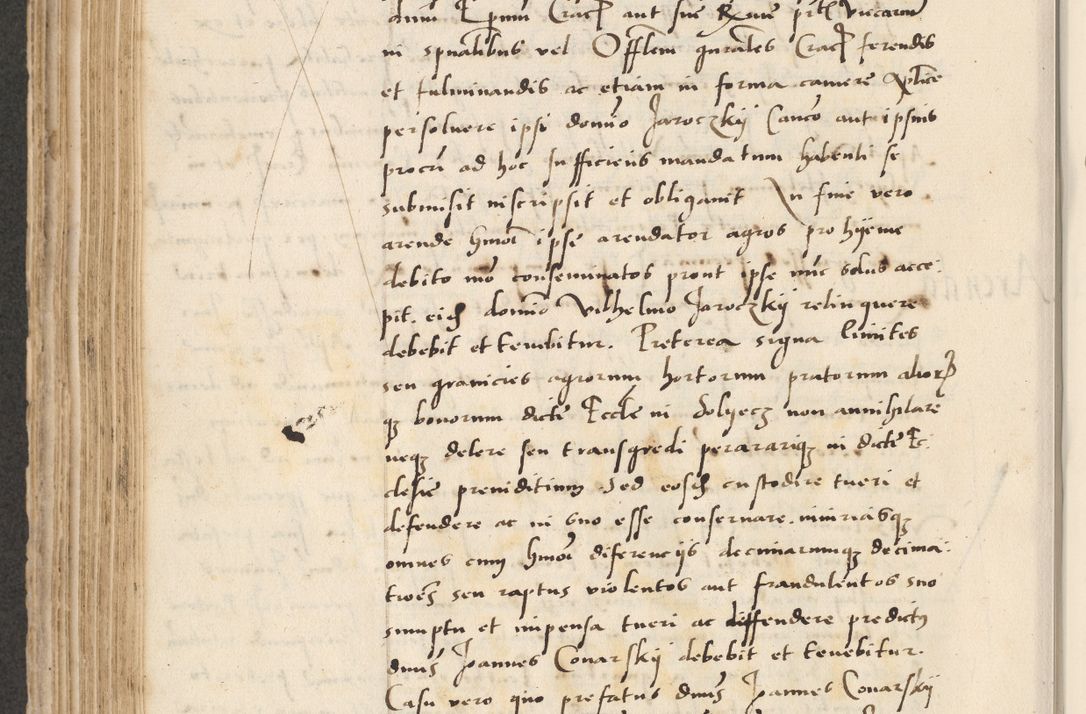 dnm Epum Crac aut sue Rxme prtl vicarm
in spualibus vel Offlem gnrales Crac ferendis
et fulminandis ac etiam in forma camere aplice
persolvere ipsi domno Jaroczkij Canco aut ipsius
procri ad hoc sufficiens mandatum habenti se
submisit inscripsit et obligavit In fine vero
arende hmoi ipse arendator agros pro hyeme
debito mo conseminatos prout ipse nunc solus acce
pit. eid domno Vilhelmo Jaroczkij relinquere
debebit et tenebitur. Preterea signa limites
seu granicies agrorum hortorum pratorum alior
q bonorum dicte Eccle in Sobyecz non annihilare
neq delere seu transgredi perarariq in dicte Ec
clesie preiuditium Sed eosd custodire tueri et
defendere ac in suo esse conservare. iniuriasq
omnes cum hmoi diferencijs decimarumq decima
troes seu raptus violentos aut fraudulentos suo
sumptu et inpensa tueri ac diffendere predictus
dnus Joannes Conarskij debebit et tenebitur.
Casu vero quo prefatus dnus Joannes Conarskij